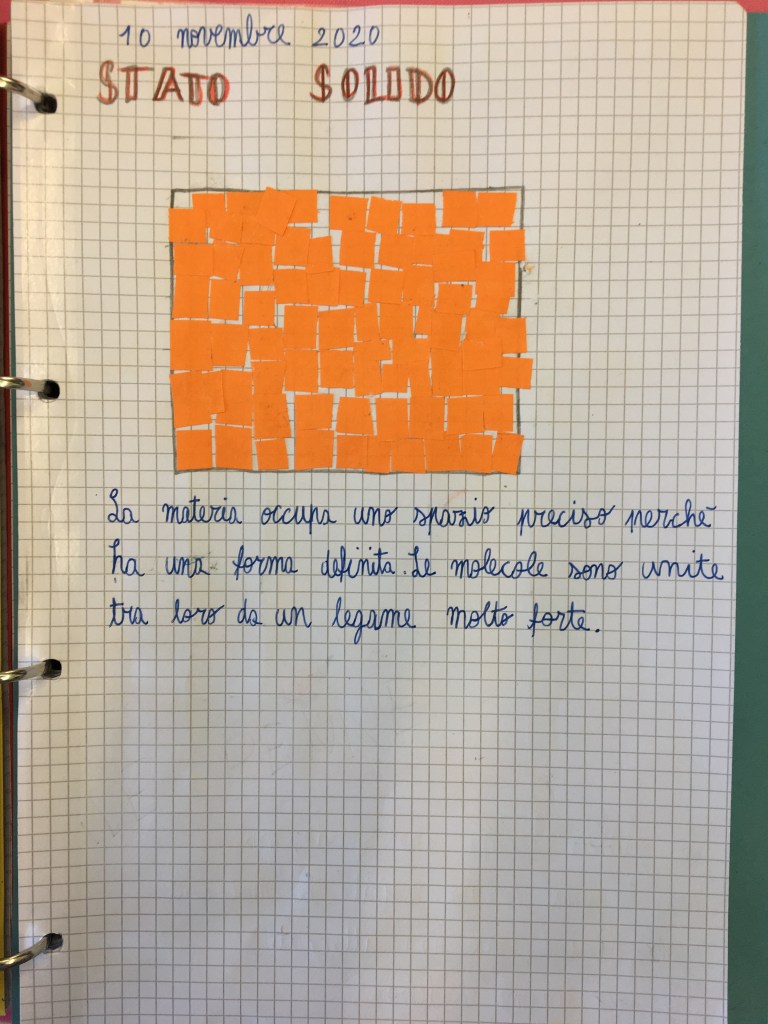 10 novembre 2020
STATO SOLIDO
La materia occupa uno spazio preciso perché
ha una forma definita. Le molecole sono unite
tra loro da un legame molto forte.